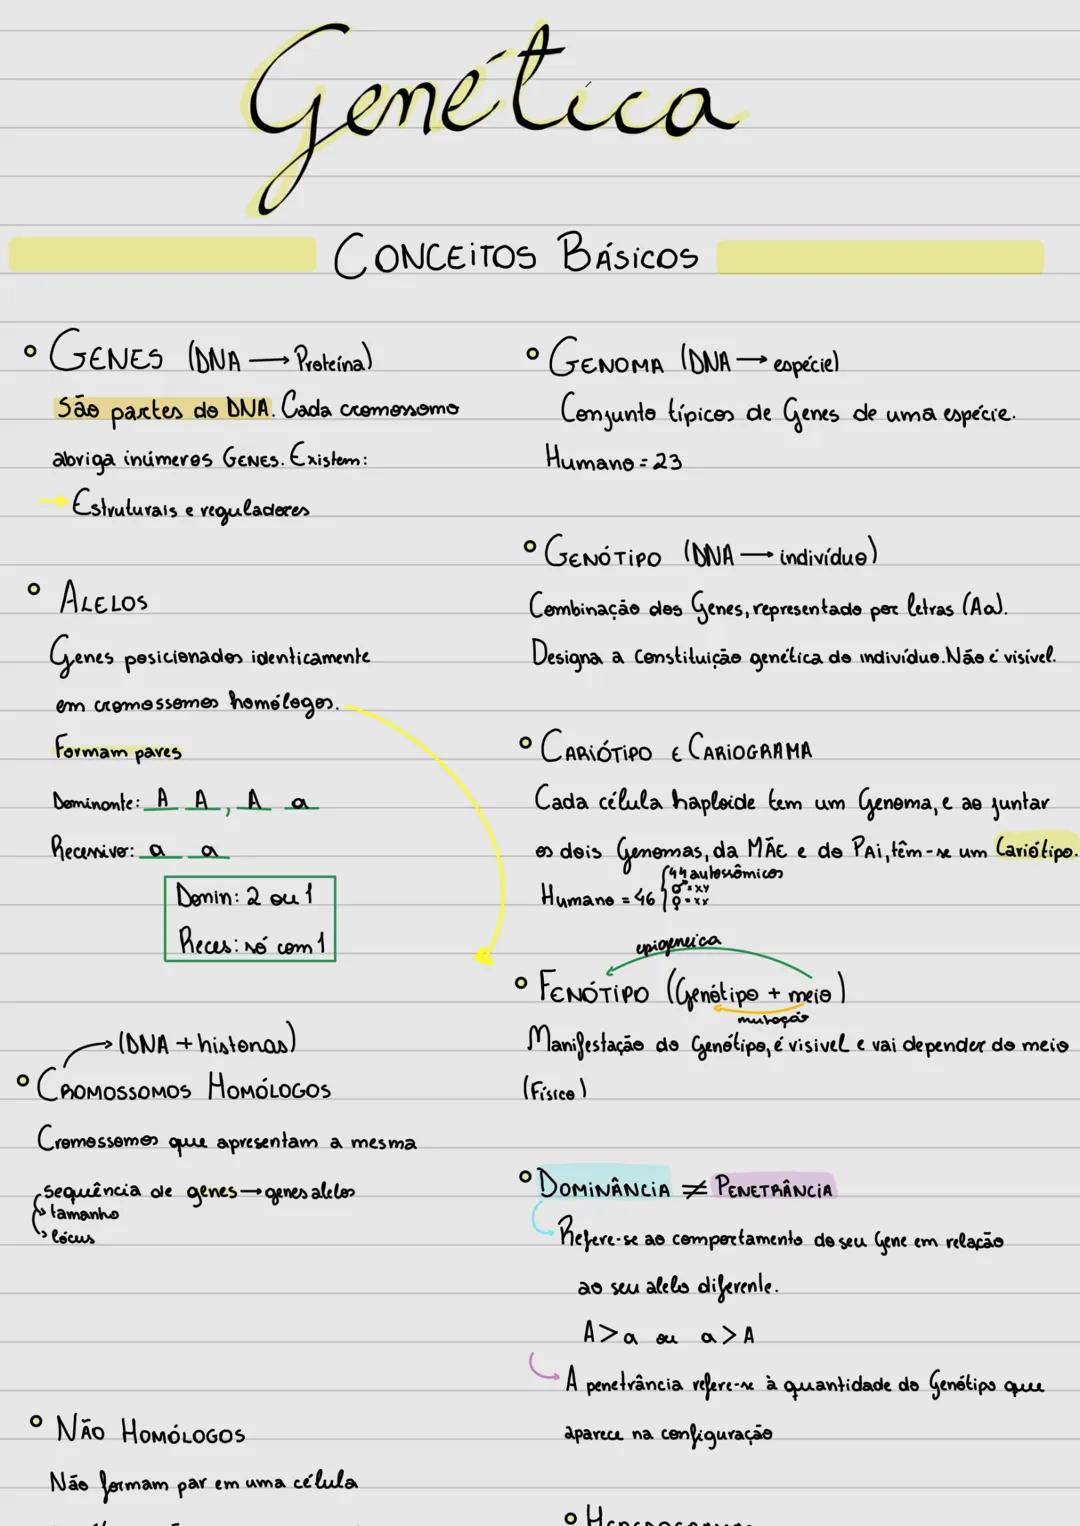 Genética
CONCEITOS BÁSICOS
GENES (DNA → Proteína)
São partes do DNA. Cada cromossomo
abriga inúmeros GENES. Existem:
→ Estruturais e reguladores
ALELOS
Genes posicionados identicamente
em cromossomos homólogos.
Formam pares
Dominante: A A, A a
Recessivo: a a
Domin: 2 ou 1
Reces: só com 1
→ (DNA + histonas)
CROMOSSOMOS HOMÓLOGOS
Cromossomos que apresentam a mesma
sequência de genes → genes alelos
→ tamanho
→ lócus
NÃO HOMÓLOGOS
Não formam par em uma célula
GENOMA (DNA → espécie)
Conjunto típicos de Genes de uma espécie.
Humano = 23
GENÓTIPO (DNA → indivíduo)
Combinação dos Genes, representado por letras (Aa).
Designa a constituição genética do indivíduo. Não é visível.
CARIÓTIPO E CARIOGRAMA
Cada célula haploide tem um Genoma, e ao juntar
os dois Genomas, da MÃE e do PAi, têm-se um Cariótipo.
Humano = 46 { 44 autossômicos
♂ = XY
♀ = XX
epigeneica
FENÓTIPO (Genótipo + meio)
mutação
Manifestação do Genótipo, é visivel e vai depender do meio
(Físico)
DOMINÂNCIA ≠ PENETRÂNCIA
Refere-se ao comportamento do seu Gene em relação
ao seu alelo diferente.
A > a ou a > A
A penetrância refere-se à quantidade do Genótipo que
aparece na configuração